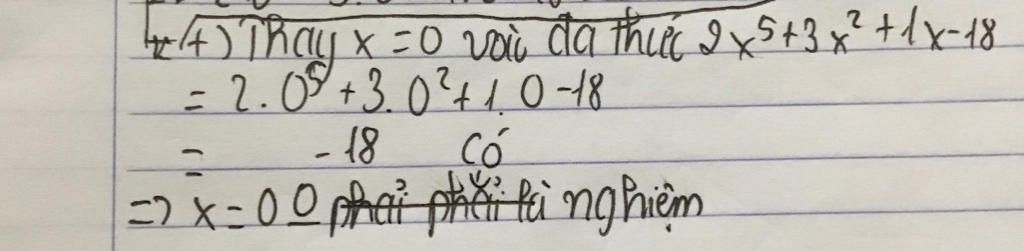 +) Thay x = 0 vào đa thức 2x⁵ + 3x² + 1x - 18
= 2.0⁵ + 3.0² + 1.0 - 18
= -18 có
=> x = 0 là nghiệm